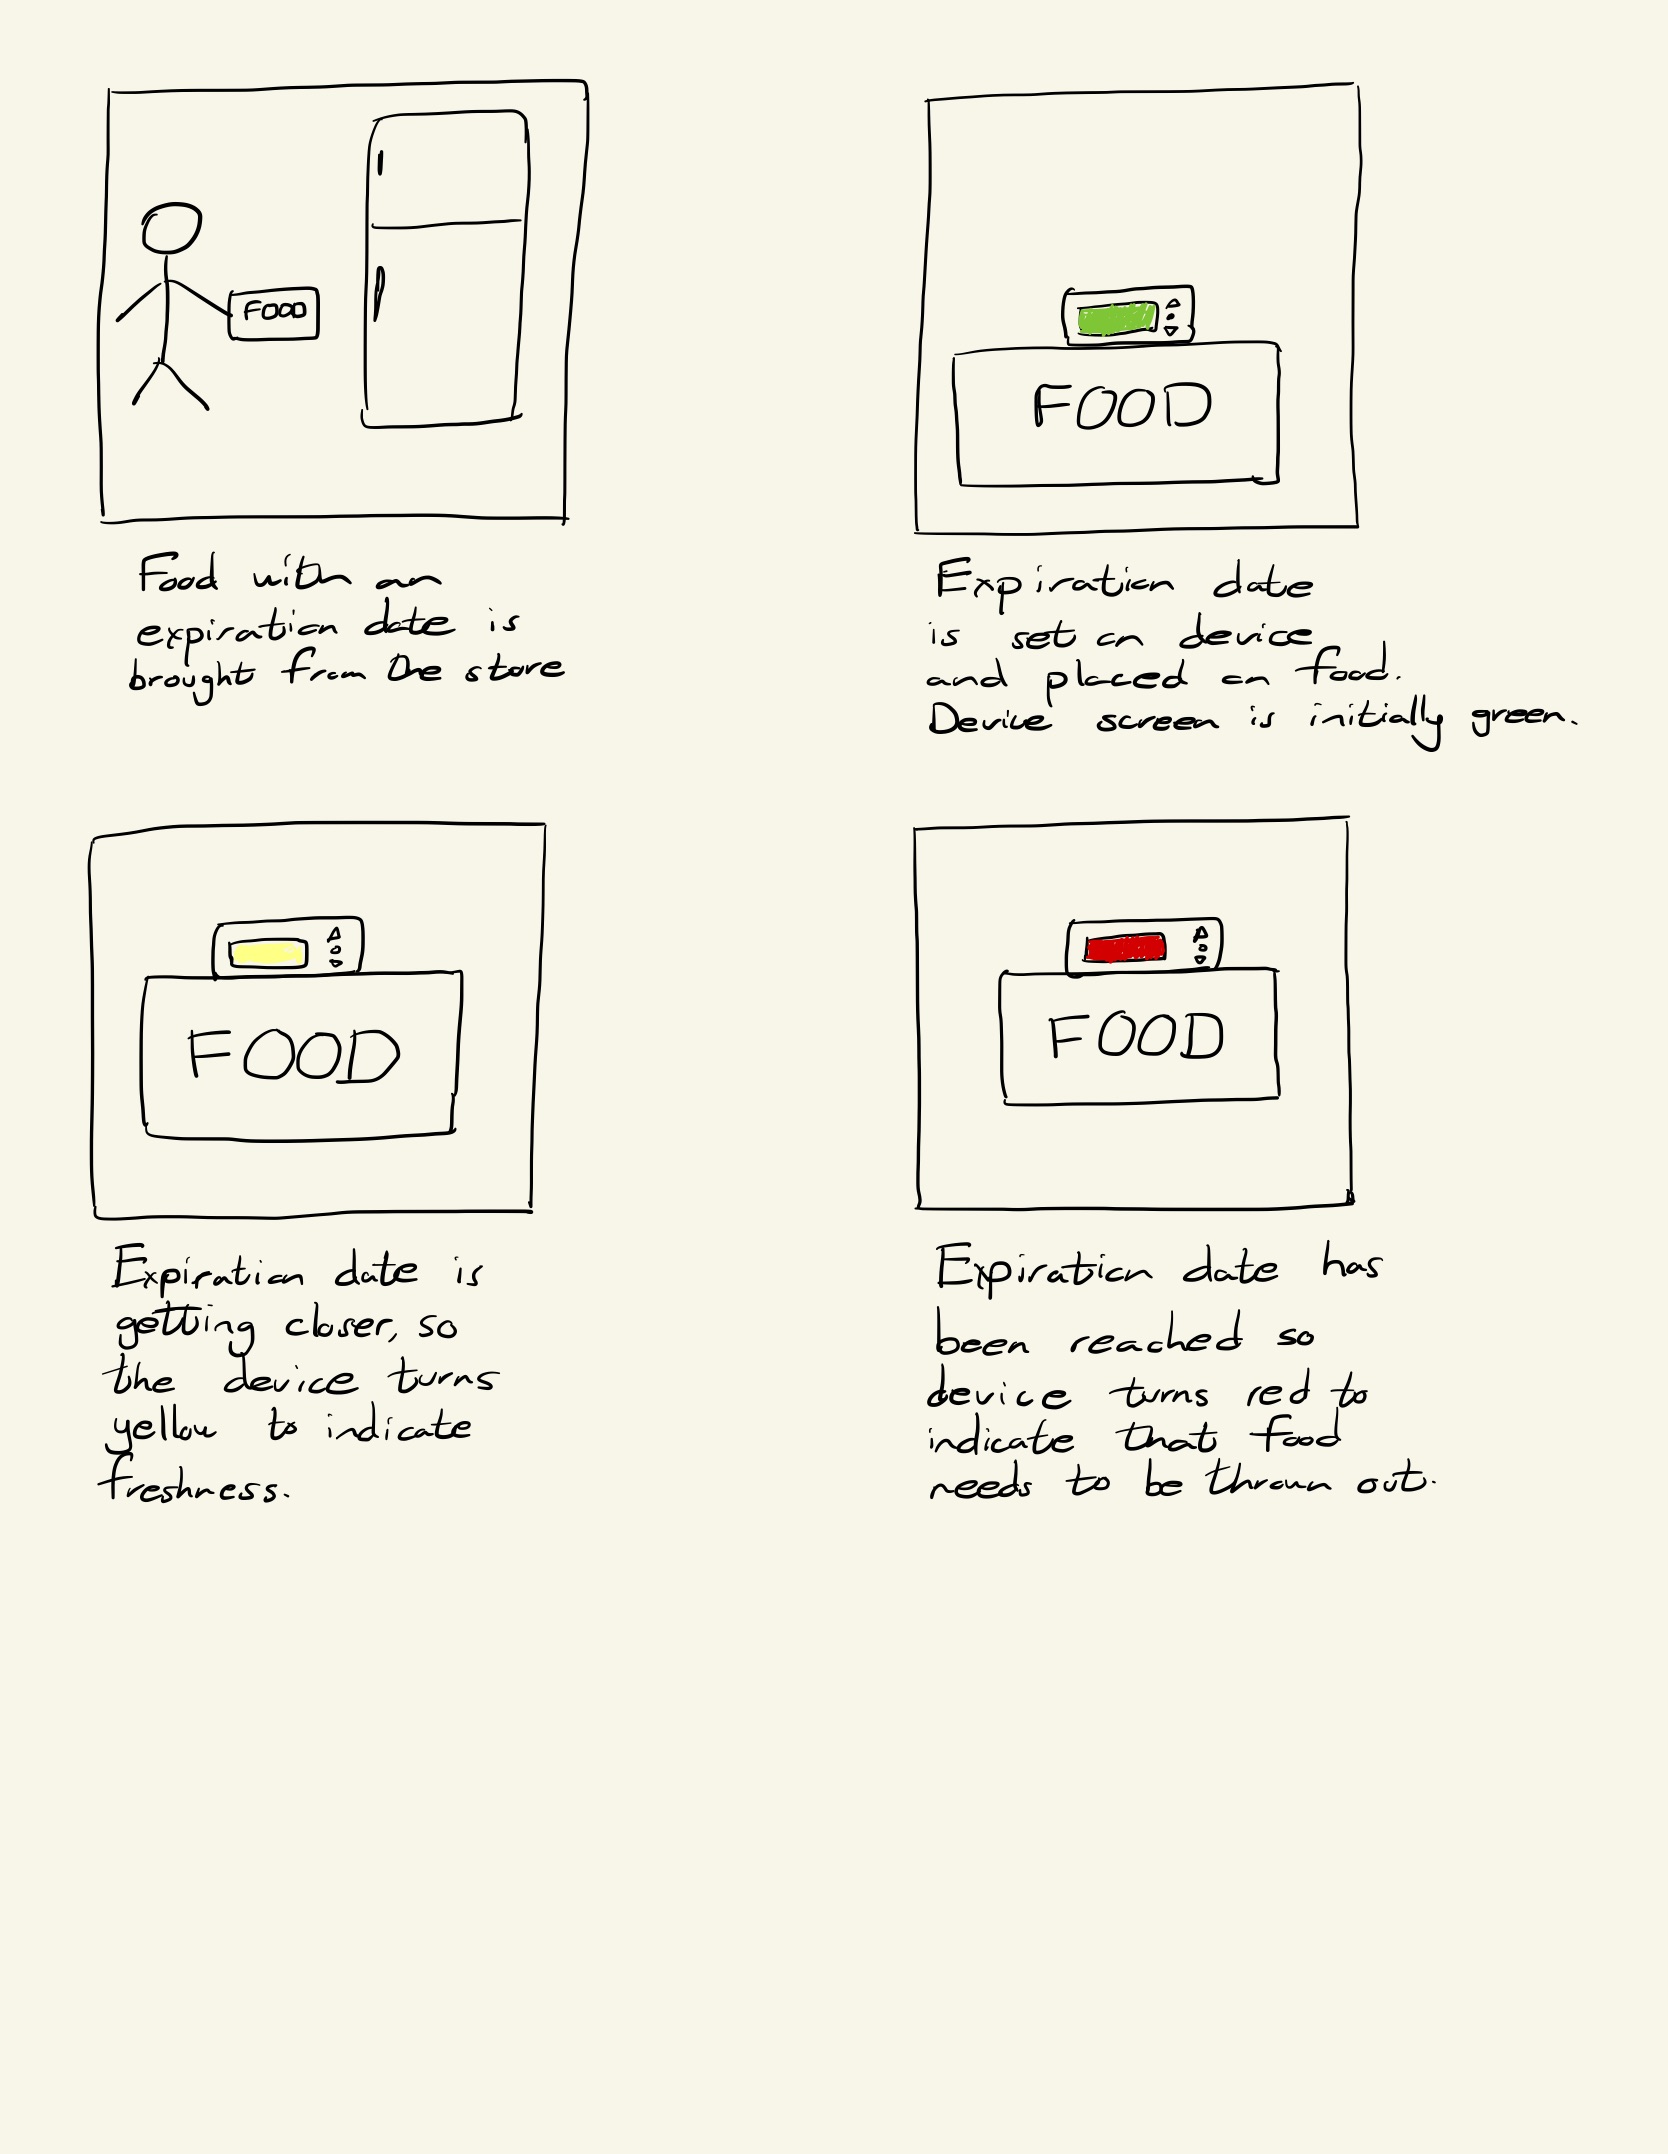 FOOD
Food with an
expiration date is
brought from the store
FOOD
Expiration date
is set on device
and placed on food.
Device screen is initially green.
FOOD
Expiration date is
getting closer, so
the device turns
yellow to indicate
freshness.
FOOD
Expiration date has
been reached so
device turns red to
indicate that food
needs to be thrown out.